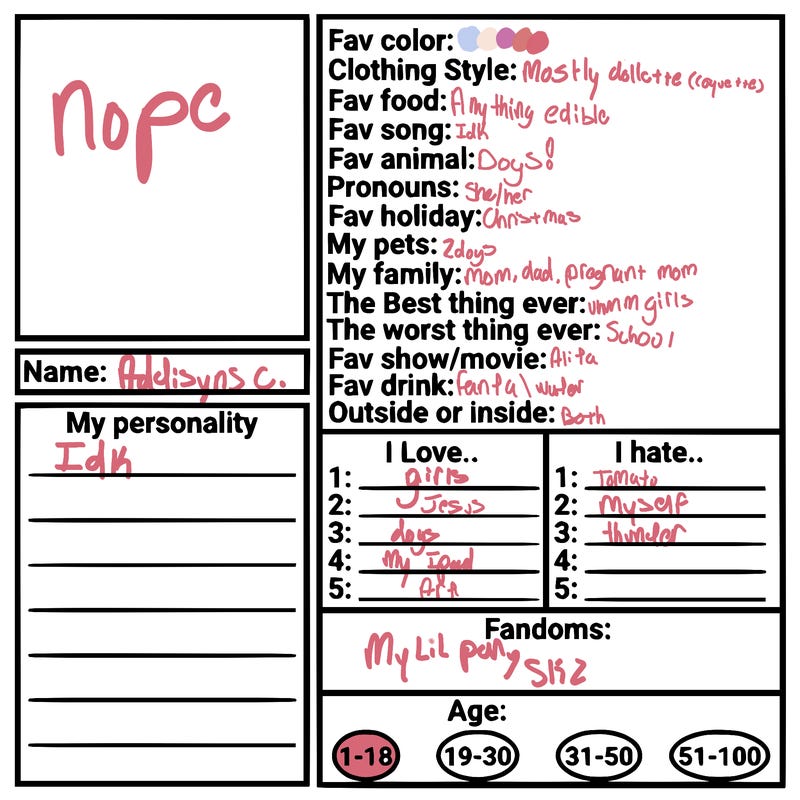 nope
Name: Addisyns C.
My personality
Idk
Fav color:
Clothing Style: Mostly dollette (coquette)
Fav food: Anything edible
Fav song: Idk
Fav animal: Dogs!
Pronouns: She/her
Fav holiday: Christmas
My pets: 2 dogs
My family: mom, dad, pregnant mom
The Best thing ever: umm girls
The worst thing ever: School
Fav show/movie: Alita
Fav drink: fanta \ water
Outside or inside: Both
I Love..
1: girls
2: Jesus
3: dogs
4: My Ipad
5: Art
I hate..
1: Tomato
2: Myself
3: thunder
4:
5:
Fandoms:
My Lil pony
SKZ
Age:
1-18 19-30 31-50 51-100